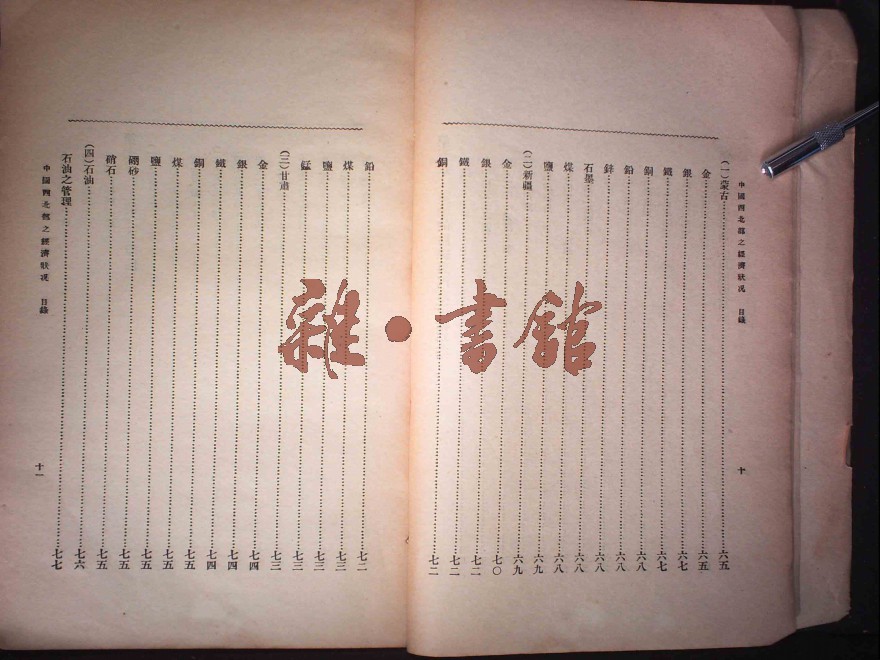 中國西北部之經濟狀況 目錄
十
(一)蒙古……六五
金……六五
銀……六七
鐵……六七
銅……六八
鉛……六八
鋅……六八
石墨……六八
煤……六八
鹽……六九
(二)新疆……六九
金……七〇
銀……七二
鐵……七二
銅……七二
鉛……七二
煤……七三
鹽……七三
錳……七三
(三)甘肅……七三
金……七四
銀……七四
鐵……七四
銅……七五
煤……七五
鹽……七五
硼砂……七五
硝石……七五
(四)石油……七六
石油之管理……七七
中國西北部之經濟狀況 目錄
十一
雜·書館